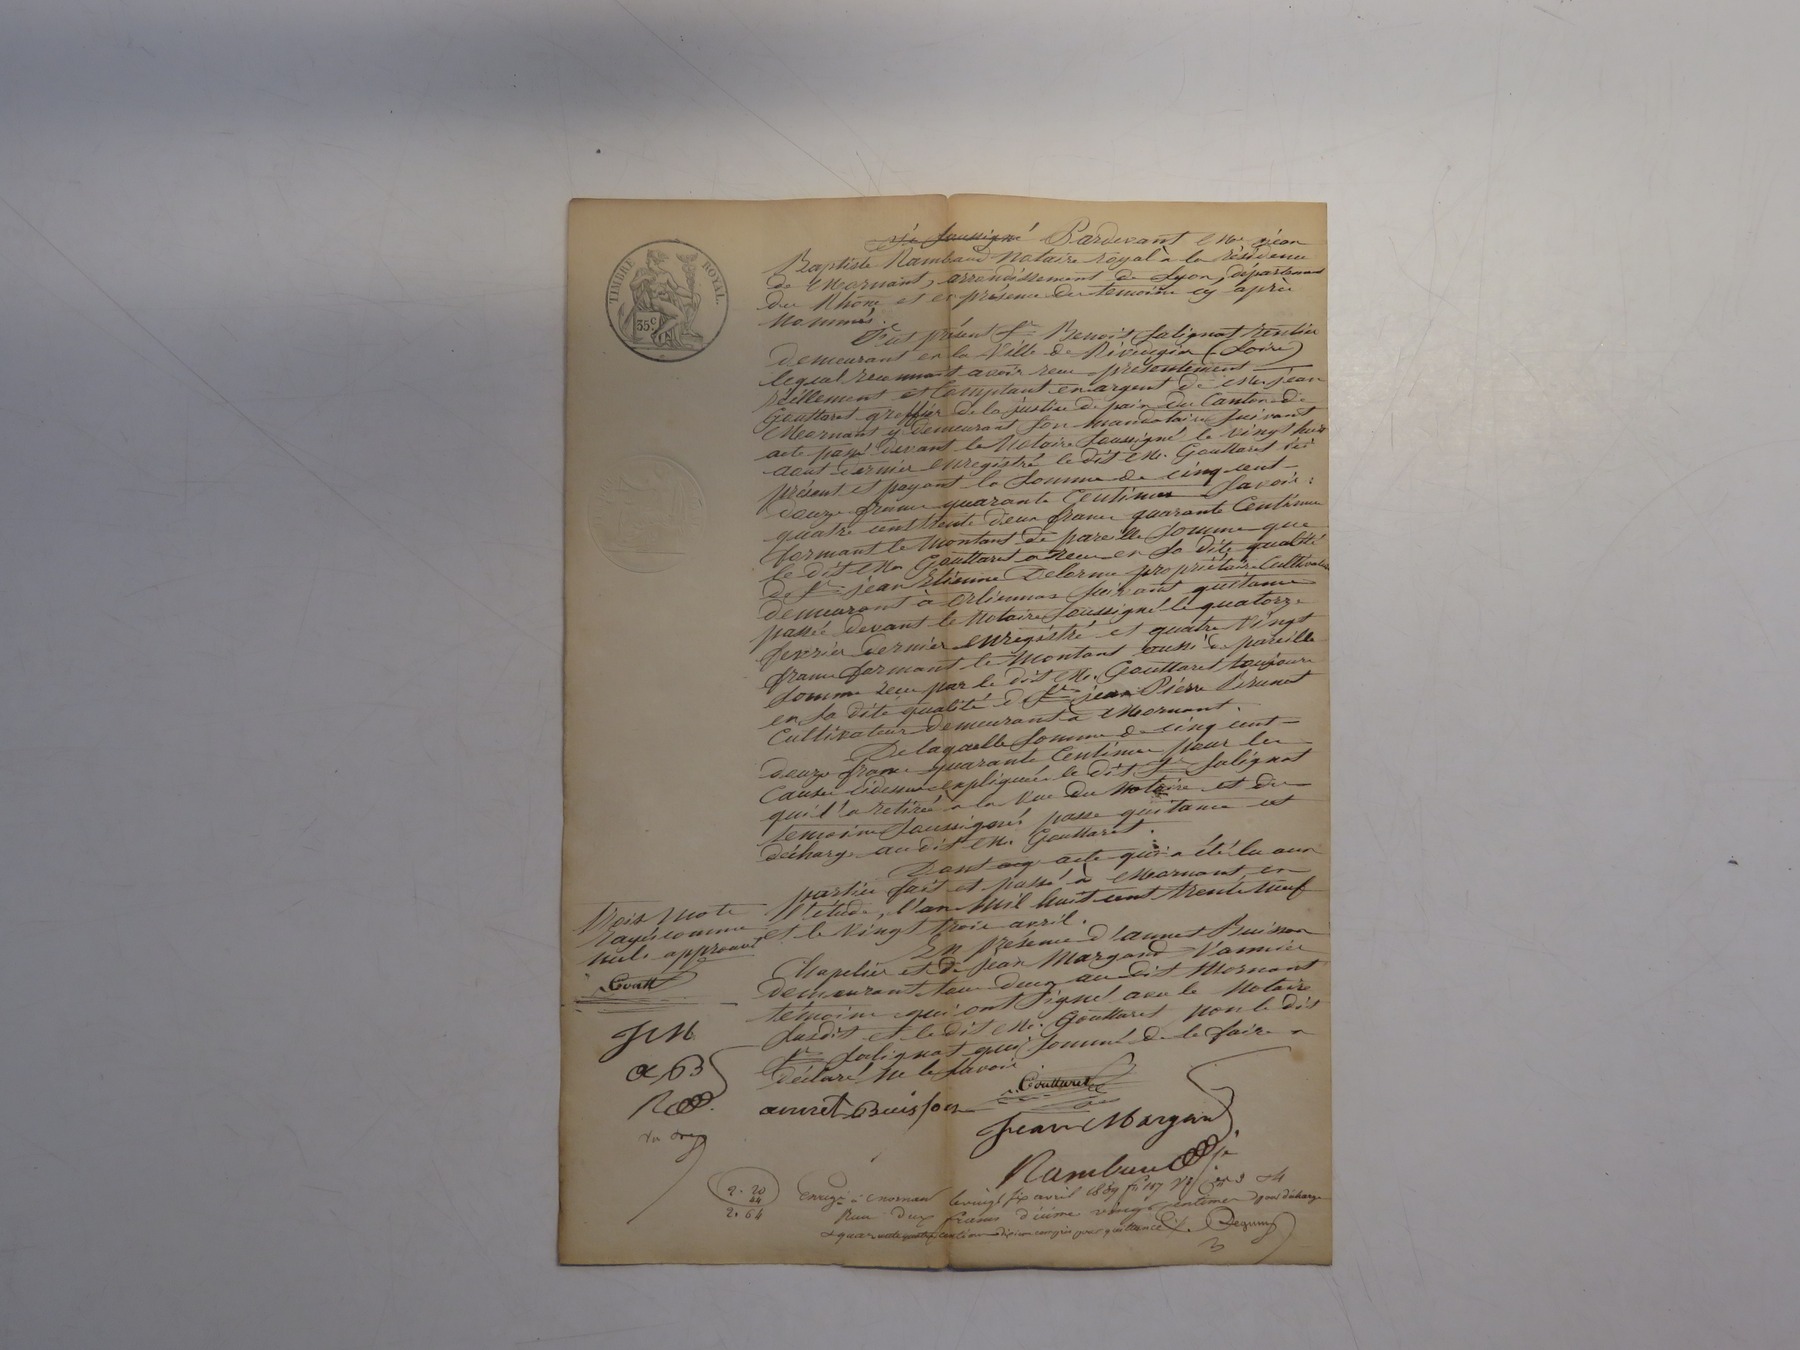 TIMBRE ROYAL
35c
Je soussigné Pardevant Me jéan
Baptiste Rambaud Notaire royal à la résidence
de Mornant, arrondissement de Lyon, département
du Rhône et en présence des temoins cy après
Nommés.
Fut présent Sr Benoit Salignat rentier
demeurant en la Ville de Rivedegier (Loire)
lequel reconnait avoir reçu présentement
réellement et Comptant en argent de Me jéan
Gouttaret greffier de la justice de paix du Canton de
Mornant y demeurant son mandataire suivant
acte passé devant le Notaire soussigné le vingt huit
aout dernier enregistré le dit Me. Gouttaret ici
présent et payant la somme de cinq cent
douze francs quarante Centimes Savoir:
quatre cent trente deux francs quarante Centimes
formant le Montant de pareille somme que
le dit Me Gouttaret a reçu en sa dite qualité
de Sr jean Etienne Delorme propriétaire Cultivateur
demeurant à Orlienas suivant quittance
passée devant le Notaire soussigné le quatorze
fevrier dernier enregistré et quatre vingt
francs formant le Montant aussi de pareille
somme reçu par le dit Me. Gouttaret toujours
en sa dite qualité de Sr jéan Piérre
Cultivateur demeurant à Mornant.
De laquelle somme de cinq cent
douze francs quarante Centimes pour les
Causes cidessus expliquées le dit Sr Salignat
qui l'a retirée a la Vue du Notaire et des
temoins soussignés passe quittance et
décharge au dit Me. Gouttaret.
Dont acte qui a été lu aux
parties fait et passé à Mornant en
l'étude, l'an Mil huit cent trente neuf
et le vingt trois avril.
En présence d'annet Buisson
Chapelier et de jean Margand Vannier
demeurant tous deux au dit Mornant
témoins qui ont signé avec le Notaire
susdit et le dit Me. Gouttaret non le dit
Sr Salignat qui sommé de le faire a
déclaré ne le savoir
Trois mots
rayés comme
nuls approuvé
Goutt
J M
a B
R
annet Buisson
Gouttaret
Jean Margand
Rambaud
2. 20
44
2. 64
Enregé à Mornant le vingt six avril 1839 fo 117
Reçu deux francs dixième vingt centimes pour décharge
& quarante quatre centimes dixieme compris pour quittance